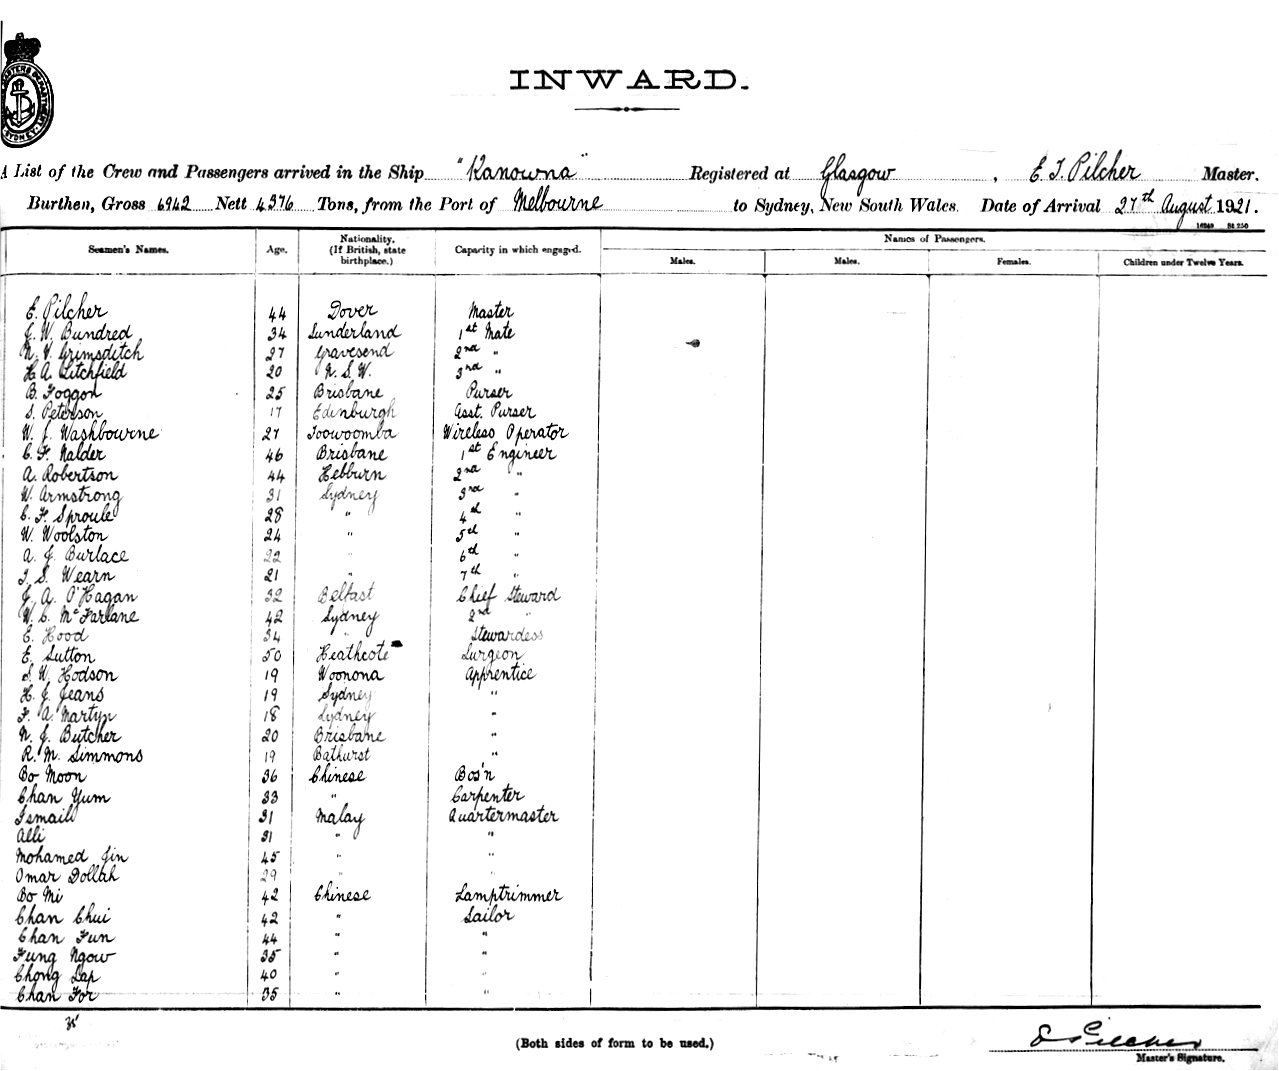 INWARD.
A List of the Crew and Passengers arrived in the Ship "Kanowna" Registered at Glasgow, E. T. Pilcher Master.
Burthen, Gross 6942 Nett 4376 Tons, from the Port of Melbourne to Sydney, New South Wales. Date of Arrival 27th August 1921.
Seamen's Names. Age. Nationality. (If British, state birthplace.) Capacity in which engaged. Names of Passengers.
Males. Males. Females. Children under Twelve Years.
E. Pilcher 44 Dover Master
J. W. Bundred 34 Sunderland 1st Mate
N. V. Grimsditch 27 Gravesend 2nd "
H. A. Litchfield 20 N. S. W. 3rd "
B. Foggon 25 Brisbane Purser
S. Peterson 17 Edinburgh Asst. Purser
W. J. Washbourne 27 Toowoomba Wireless Operator
C. F. Nalder 46 Brisbane 1st Engineer
A. Robertson 44 Hebburn 2nd "
W. Armstrong 31 Sydney 3rd "
C. F. Sproule 28 " 4th "
W. Woolston 24 " 5th "
A. J. Burlace 22 " 6th "
T. S. Wearn 21 " 7th "
J. A. O'Hagan 32 Belfast Chief Steward
W. C. McFarlane 42 Sydney 2nd "
E. Hood 34 " Stewardess
E. Sutton 50 Heathcote Surgeon
S. W. Hodson 19 Woonona Apprentice
H. J. Jeans 19 Sydney "
F. A. Martyn 18 Sydney "
N. J. Butcher 20 Brisbane "
R. M. Simmons 19 Bathurst "
Bo Moon 36 Chinese Bos'n
Chan Yum 33 " Carpenter
Ismail 31 Malay Quartermaster
Alli 31 " "
Mohamed Jin 45 " "
Omar Dollah 29 " "
Bo Mi 42 Chinese Lamptrimmer
Chan Chui 42 " Sailor
Chan Fun 44 " "
Fung Ngow 35 " "
Chong Lap 40 " "
Chan For 35 " "
35
(Both sides of form to be used.)
E Pilcher
Master's Signature.